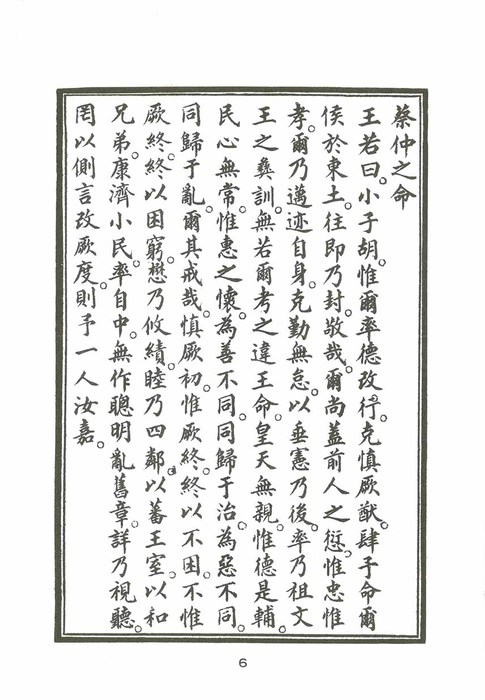 蔡仲之命
王若曰。小子胡。惟爾率德改行。克慎厥猷。肆予命爾
侯於東土。往即乃封。敬哉。爾尚蓋前人之愆。惟忠惟
孝。爾乃邁迹自身。克勤無怠。以垂憲乃後。率乃祖文
王之彝訓。無若爾考之違王命。皇天無親。惟德是輔。
民心無常。惟惠之懷。為善不同。同歸于治。為惡不同。
同歸于亂。爾其戒哉。慎厥初。惟厥終。終以不困。不惟
厥終。終以困窮。懋乃攸績。睦乃四鄰。以蕃王室。以和
兄弟。康濟小民。率自中。無作聰明亂舊章。詳乃視聽。
罔以側言改厥度。則予一人汝嘉。
6